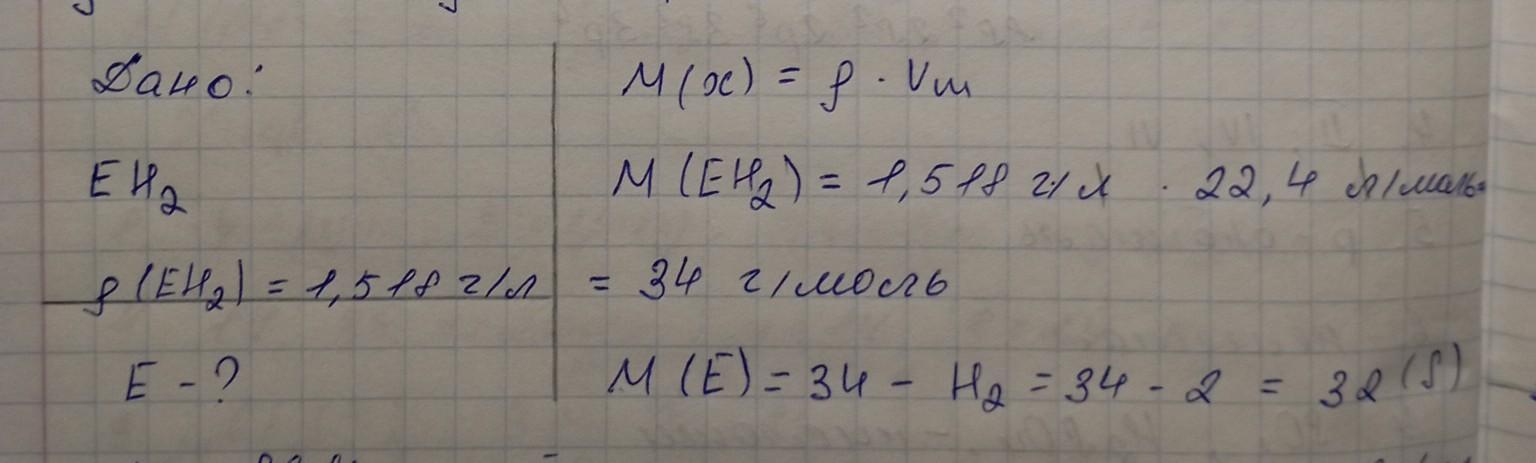 Дано:
EH₂
ρ(EH₂) = 1,518 г/л
E - ?
M(x) = ρ · Vm
M(EH₂) = 1,518 г/л · 22,4 л/моль=
= 34 г/моль
M(E) = 34 - H₂ = 34 - 2 = 32 (S)